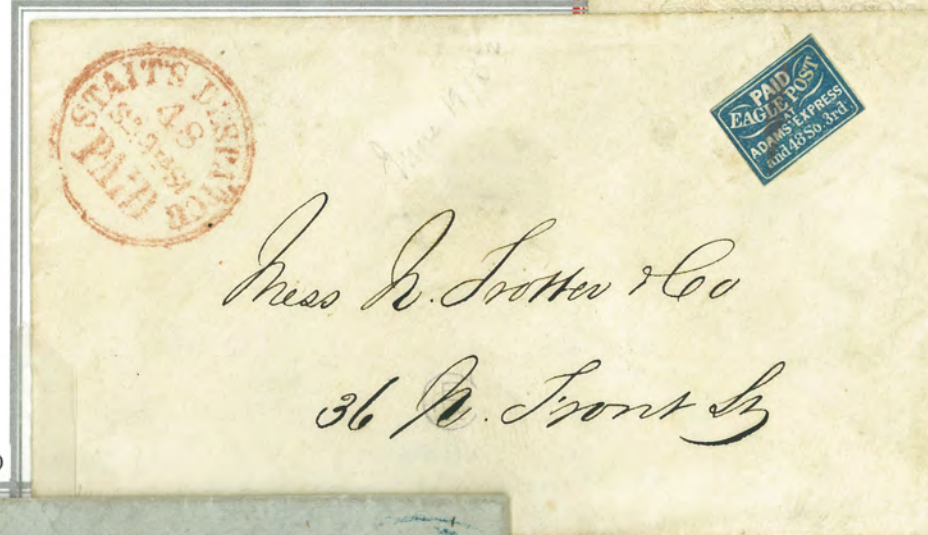 STAIT'S DESPATCH
48
So. 3rd St
PAID
PAID
EAGLE POST
AT
ADAMS' EXPRESS
and 48 So. 3rd.
Mess N. Trotter & Co
36 N. Front St